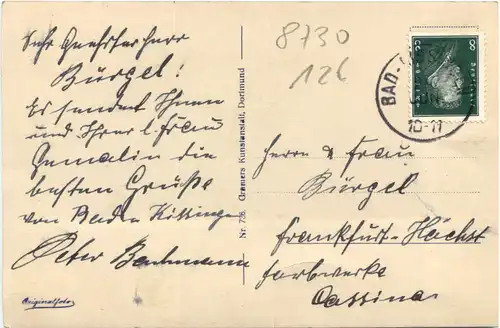 Sehr Geehrter Herr
Bürgel!
Es sendet Ihnen
und Ihrer l. Frau
Gemalin die
besten Grüße
von Bad Kissingen
Peter Bachmann
Originalfoto
Nr. 726. Cramers Kunstanstalt, Dortmund
8730
126
8 8
BAD
10-11
Herrn & Frau
Bürgel
Frankfurt-Höchst
Farbwerke
Cassina